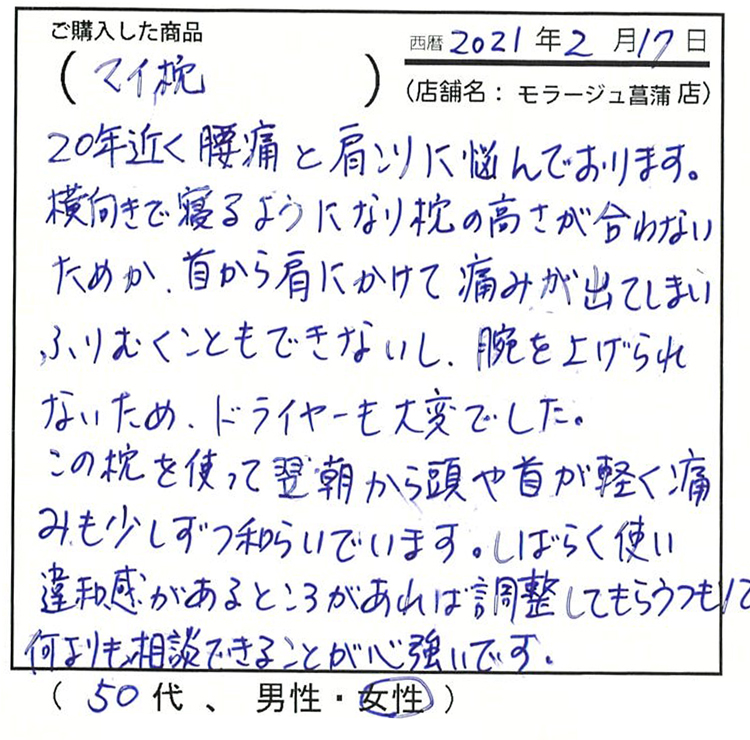 ご購入した商品
西暦 2021 年 2 月 17 日
( マイ枕 )
(店舗名： モラージュ菖蒲 店)
20年近く腰痛と肩こりに悩んでおります。
横向きで寝るようになり枕の高さが合わない
ためか、首から肩にかけて痛みが出てしまい
ふりむくこともできないし、腕を上げられ
ないため、ドライヤーも大変でした。
この枕を使って翌朝から頭や首が軽く痛
みも少しずつ和らいでいます。しばらく使い
違和感があるところがあれば調整してもらうつもりで
何よりも相談できることが心強いです。
( 50 代 、 男性・女性 )